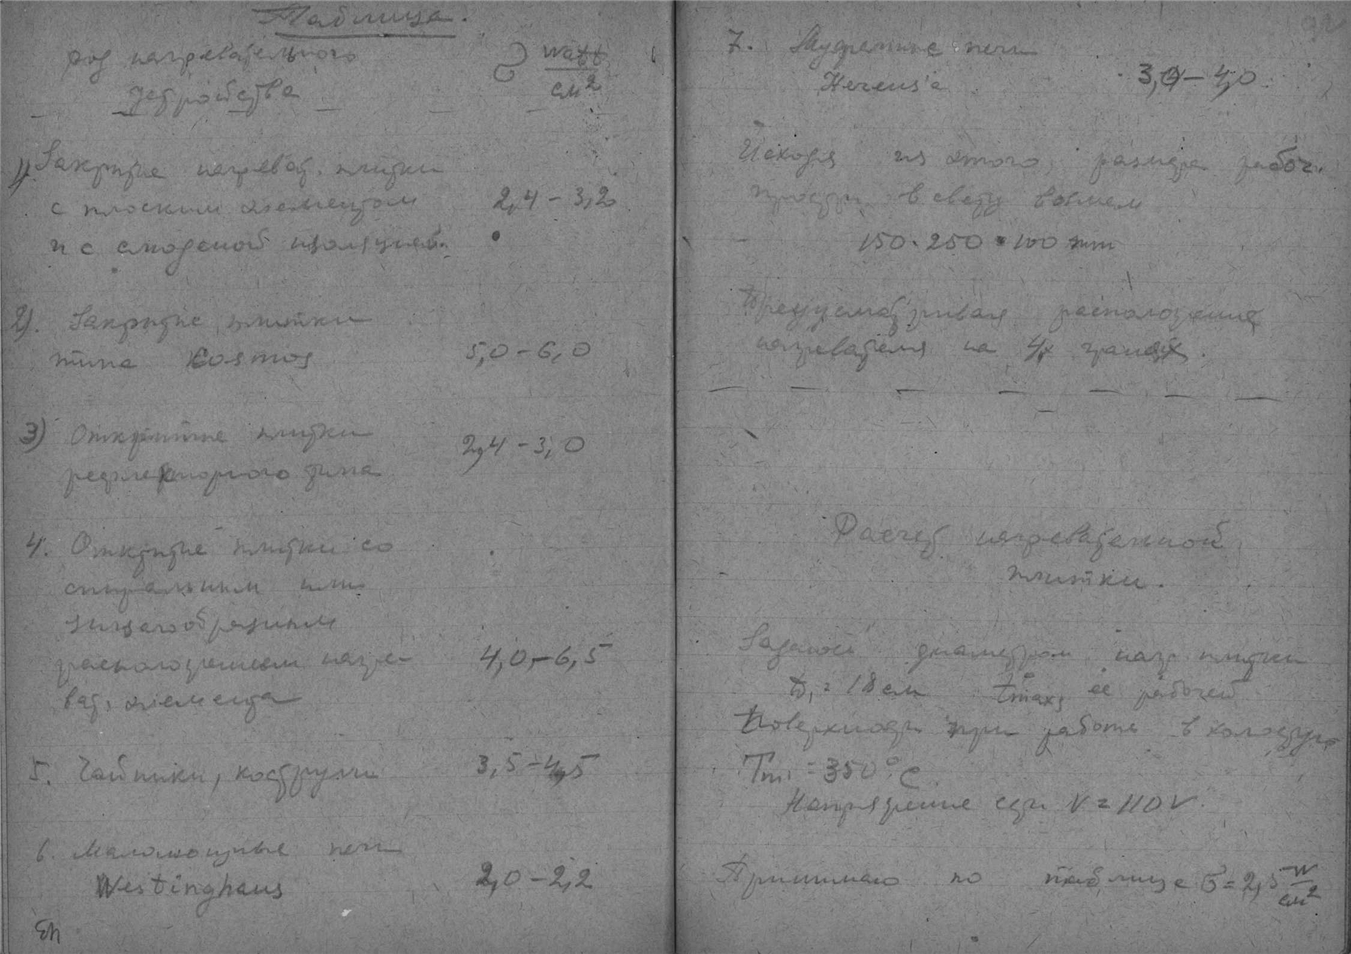 Таблица.
род нагревательного
устройства
watt
см²
1). Закрытые нагреват. плитки
с плоским элементом
2,4 – 3,2
и с слюденой изоляцией.
2). Закрытые плитки
типа Kosmos
5,0 – 6,0
3) Открытые плитки
2,4 – 3,0
рефлекторного типа
4. Открытые плитки со
спиральным или
зигзагообразным
расположением нагре-
4,0 – 6,5
ват. элемента
5. Чайники, кострули
3,5 – 4,5
6. Маломощные печи
Westinghaus
2,0 – 2,2
7. Муфельные печи
Hereus'a
3,0 – 4,0
Исходя из этого, размера рабоч.
простр. в свету возьмем
150 · 250 · 100 mm
Предусматривая расположение
нагревателя на 4х гранях.
Расчет нагревательной
плитки.
Задаюсь диаметром нагр. плитки
D₁ = 18 см tmax, ее рабочей
поверхности при работе в холостую
Tm₁ = 350°C.
Напряжение сети V = 110 V.
Принимаю по таблице σ = 2,5 W
см²